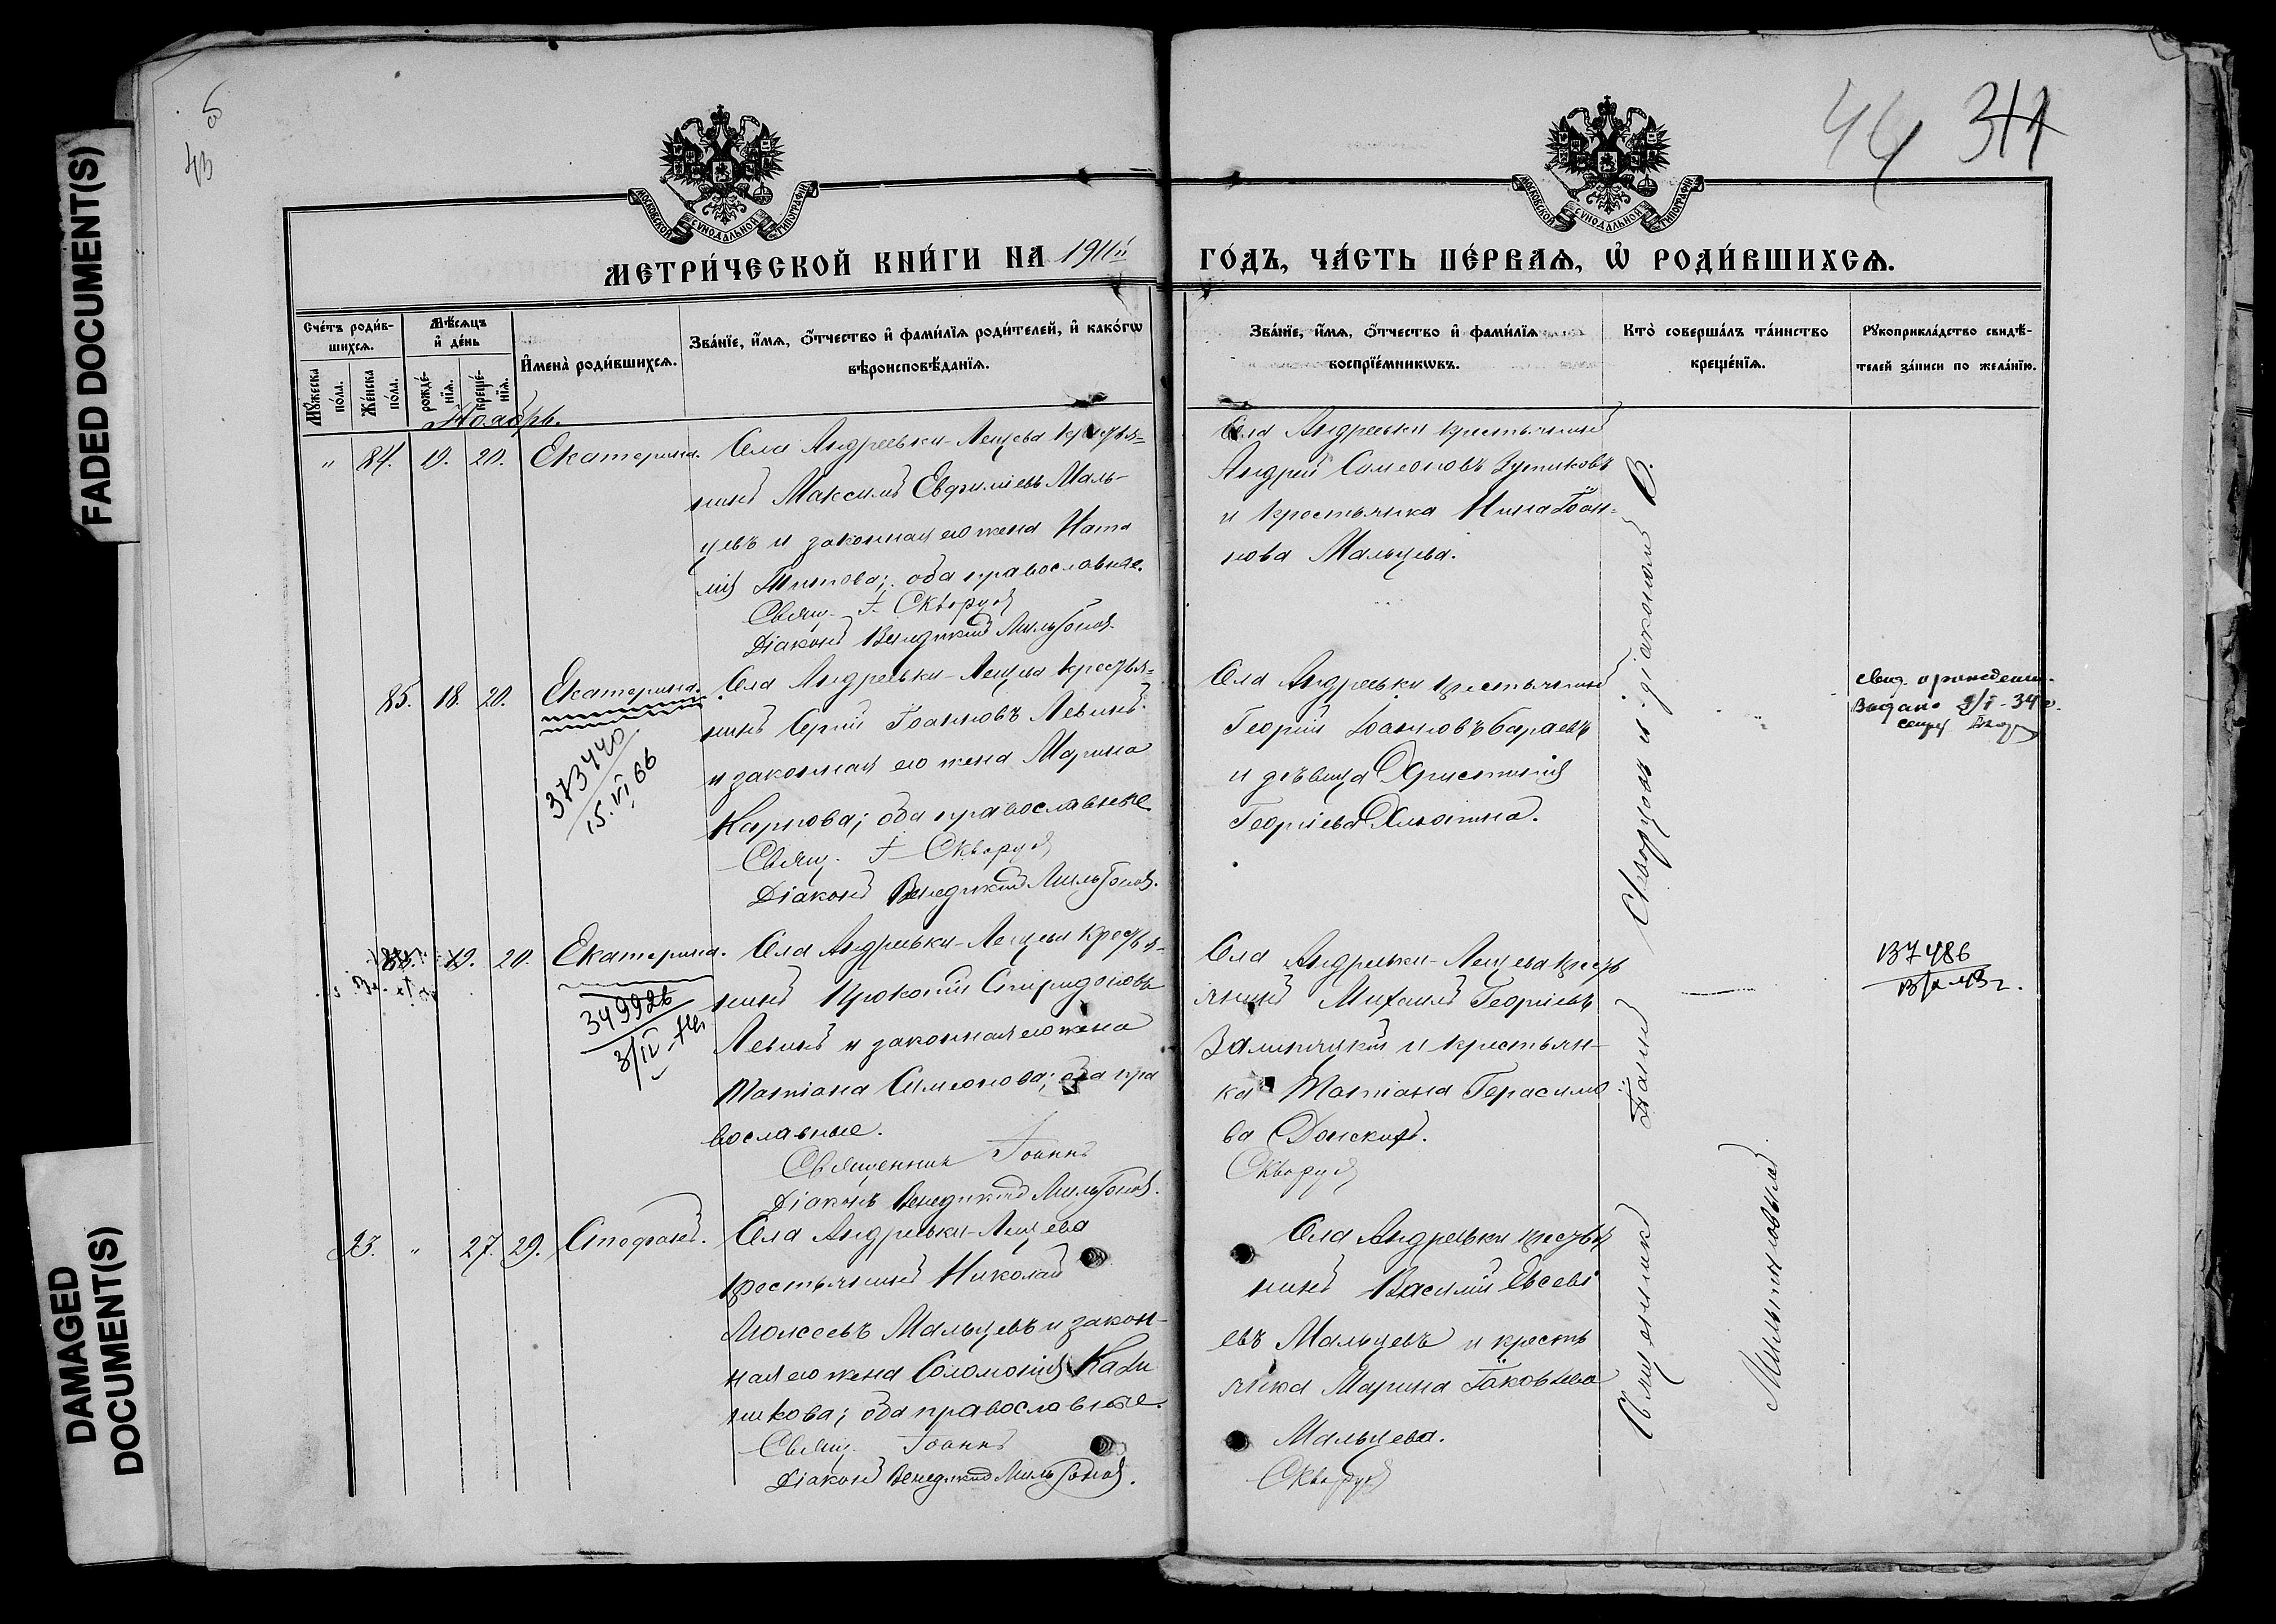 FADED DOCUMENT(S)
DAMAGED
DOCUMENT(S)
43
44 311
МОСКОВСКОЙ СѴНОДАЛЬНОЙ ТИПОГРАФІИ
МОСКОВСКОЙ СѴНОДАЛЬНОЙ ТИПОГРАФІИ
МЕТРИ́ЧЕСКОЙ КНИ́ГИ НА 1911й
ГО́ДЪ, ЧА́СТЬ ПЕ́РВАѦ, Ѡ҆ РОДИ́ВШИХСѦ.
Сче́тъ роди́в-
шихсѧ.
Мꙋ́жеска
по́ла.
Же́нска
по́ла.
Мѣ́сѧцъ
и҆ де́нь
рожде́-
нїѧ.
креще́-
нїѧ.
И҆мена̀ роди́вшихсѧ.
Зва́нїе, и҆́мѧ, ѻ҆́тчество и҆ фами́лїѧ роди́телей, и҆ како́гѡ
вѣроисповѣ́данїѧ.
Зва́нїе, и҆́мѧ, ѻ҆́тчество и҆ фами́лїѧ
воспрїе́мникѡвъ.
Кто̀ соверша́лъ та́инство
креще́нїѧ.
Рꙋкоприкла́дство свидѣ́-
телей за́писи по жела́нїю.
Ноябрь.
" 84. 19. 20. Екатерина.
Села Андреевки-Лещева крестья=
нинъ Максимъ Евфиміевъ Маль-
цевъ и законная его жена Ната
лія Титова; оба православные.
Свящ. І. Скворцовъ
Діаконъ Венедиктъ Мильтоновъ.
Села Андреевки крестьянинъ
Андрей Симеоновъ
и крестьянка Нина Іоан=
нова Мальцева.
85. 18. 20. Екатерина.
373440
15.VI.66
Села Андреевки-Лещева крестья=
нинъ Сергій Іоанновъ Левинъ
и законная его жена Марина
Карпова; оба православные
Свящ. І. Скворцовъ
Діаконъ Венедиктъ Мильтоновъ.
Села Андреевки крестьянинъ
Георгій Іоанновъ Бараевъ
и дѣвица Христинія
Георгіева
свид. о рождении
Выдано 34 г.
86. 19. 20. Екатерина.
349926
3/IV
Села Андреевки-Лещева крестья=
нинъ Прокопій Спиридоновъ
Левинъ и законная его жена
Татіана Симеонова; оба пра
вославные.
Священникъ Іоаннъ
Діаконъ Венедиктъ Мильтоновъ.
Села Андреевки-Лещева кресть
янинъ Михаилъ Георгіевъ
и крестьян-
ка Татіана Герасимо
ва Донскихъ.
Скворцовъ
137486
43г.
23. " 27. 29. Стефанъ.
Села Андреевки-Лещева
крестьянинъ Николай
Моисеевъ Мальцевъ и закон-
ная его жена Соломонія Кали
никова; оба православные.
Свящ. Іоаннъ
Діаконъ Венедиктъ Мильтоновъ.
Села Андреевки крестья
нинъ Василій Евсеві
евъ Мальцевъ и кресть
янка Марина Іаковлева
Мальцева.
Скворцовъ
Священникъ Іоаннъ Скворцовъ и діаконъ В.
Мильтоновый